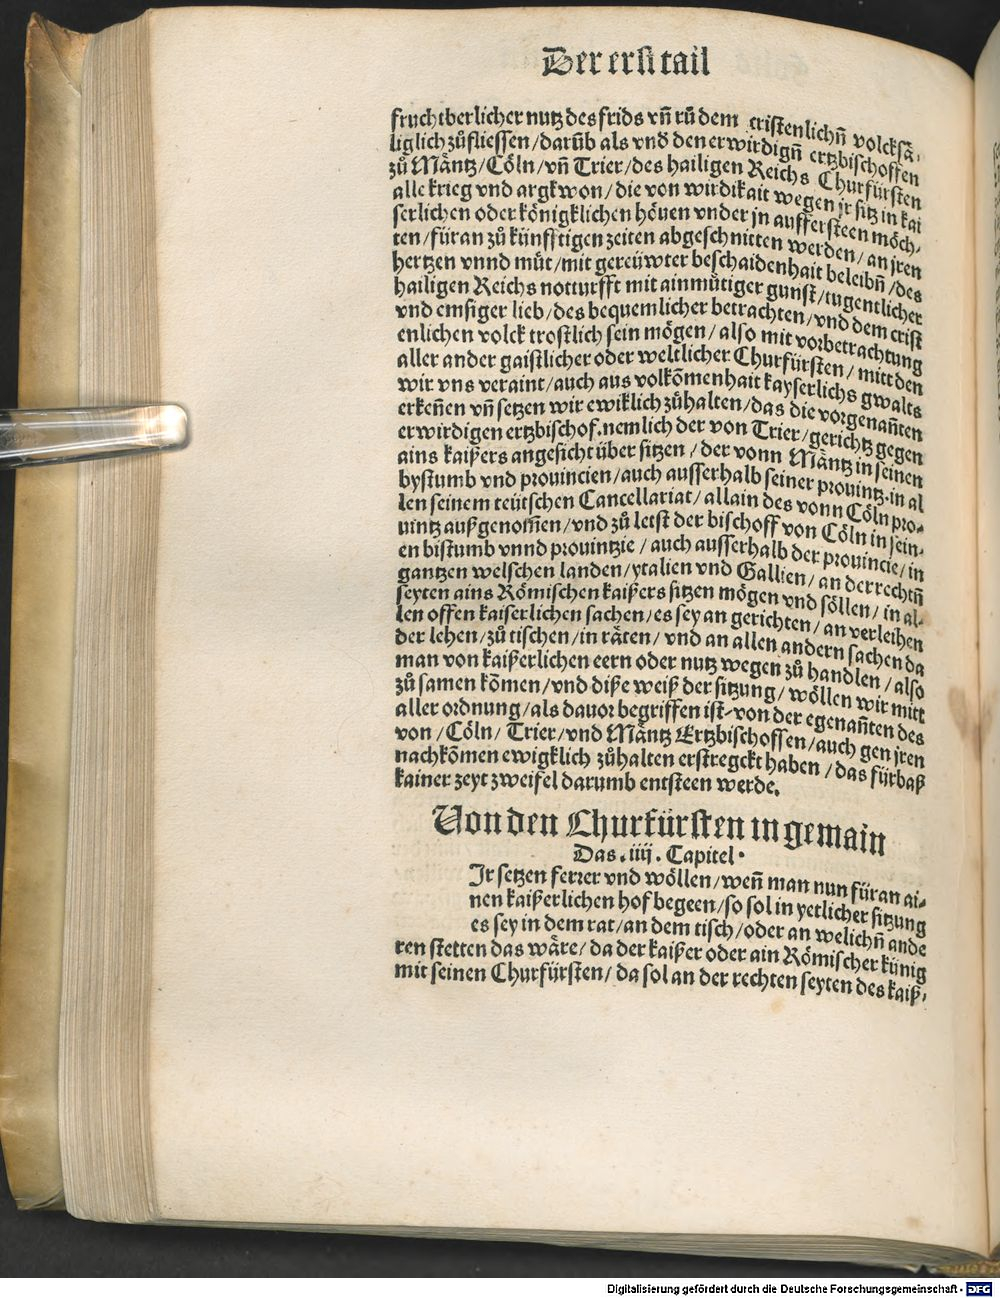 Der erst tail
fruchtberlicher nutz des frids vñ rů dem cristenlichñ volck sã-
liglich zůfliessen/darũb als vnd den erwirdigñ ertzbischoffen
zů Mäntz/Cöln/vñ Trier/des hailigen Reichs Churfürsten
alle krieg vnd argkwon/die von wirdikait wegen jr sitz in kai
serlichen oder königklichen höuen vnder jn aufferſteen möch-
ten/für an zů künfftigen zeiten abgeschnitten werden/an jren
hertzen vnnd můt/mit gereüwter beschaidenhait beleibñ/des
hailigen Reichs notturfft mit ainmůtiger gunst/tugentlicher
vnd emsiger lieb/des bequemlicher betrachten/vnd dem crist
enlichen volck trostlich sein mögen/also mit vorbetrachtung
aller ander gaistlicher oder weltlicher Churfürsten/mitt den
wir vns veraint/auch aus volkõmenhait kayserlichs gwalts
erkeñen vñ setzen wir ewiklich zůhalten/das die vorgenañten
erwirdigen ertzbischof.nemlich der von Trier/gerichtz gegen
ains kaißers angesicht über sitzen/der vonn Mäntz in seinen
bystumb vnd prouincien/auch ausserhalb seiner prouintz.in al
len seinem teütschen Cancellariat/allain des vonn Cöln pro-
uintz außgenom̃en/vnd zů letst der bischoff von Cöln in sein-
en bistumb vnnd prouintzie/auch ausserhalb der prouincie/in
gantzen welschen landen/ytalien vnd Gallien/an der rechtñ
seyten ains Römischen kaißers sitzen mögen vnd söllen/in al-
len offen kaiserlichen sachen/es sey an gerichten/an verleihen
der lehen/zů tischen/in räten/vnd an allen andern sachen da
man von kaißerlichen eern oder nutz wegen zů handlen/also
zů samen kõmen/vnd diße weiß der sitzung/wöllen wir mitt
aller ordnung/als dauor begriffen ist-von der egenañten des
von/Cöln/Trier/vnd Mäntz Ertzbischoffen/auch gen jren
nachkõmen ewigklich zůhalten erstregckt haben/das fürbaß
kainer zeyt zweifel darumb entsteen werde.
Von den Churfürsten in gemain
Das.iiij.Capitel.
Ir setzen ferrer vnd wöllen/weñ man nun für an ai-
nen kaißerlichen hof begeen/so sol in yetlicher sitzung
es sey in dem rat/an dem tisch/oder an welichñ ande
ren stetten das wäre/da der kaißer oder ain Römischer künig
mit seinen Churfürsten/da sol an der rechten seyten des kaiß-
Digitalisierung gefördert durch die Deutsche Forschungsgemeinschaft - DFG